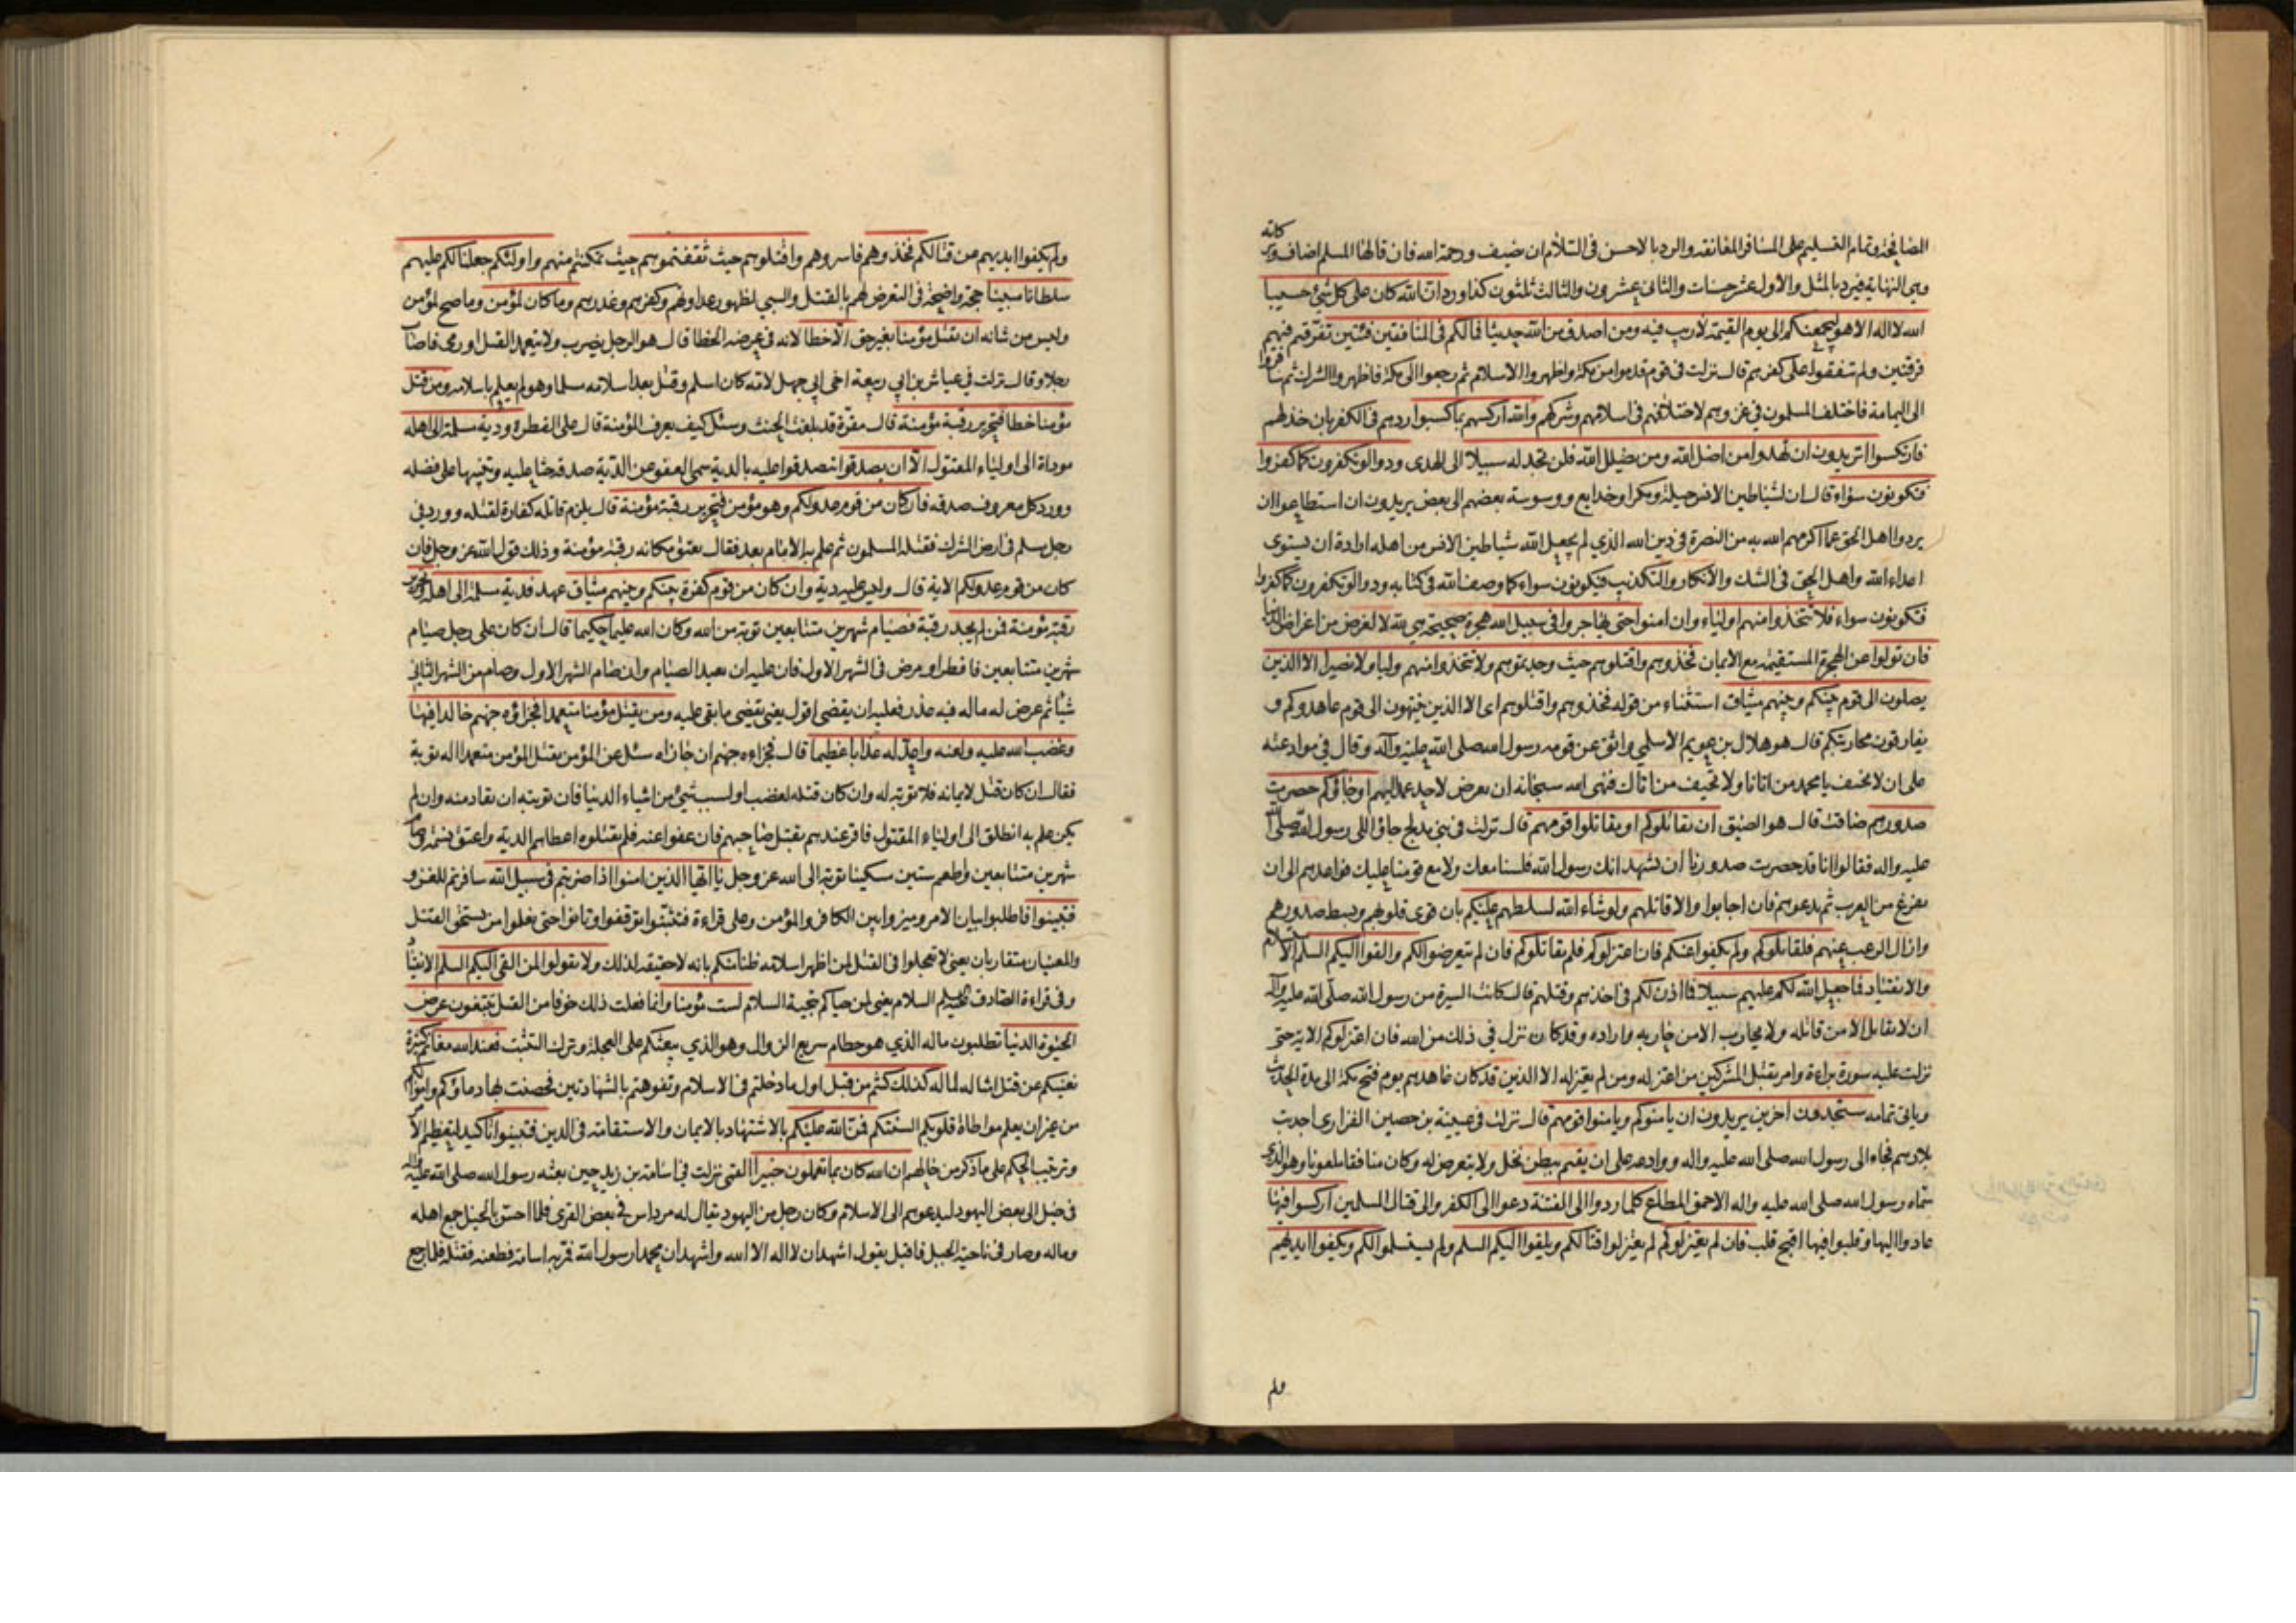 كانه
المصافحة وتمام التسليم على المسافر المعانقه والرد بالاحسن في السلام ان يضيف ورحمة الله فان قالها المسلم اضاف وبر
وهي النهاية فيرد بالمثل والاول عشر حسنات والثاني عشرون والثالث ثلثون كذا ورد ان الله كان على كل شيء حسيبا
الله لا اله الا هو ليجمعنكم الى يوم القيمة لا ريب فيه ومن اصدق من الله حديثا فما لكم في المنافقين فئتين تفرقتم فيهم
فرقتين ولم تتفقوا على كفرهم قال نزلت في قوم قدموا من مكة واظهروا الاسلام ثم رجعوا الى مكة فاظهروا الشرك ثم سافروا
الى اليمامة فاختلف المسلمون في غزوهم لاختلافهم في اسلامهم وشركهم والله اركسهم بما كسبوا ردهم في الكفر بان خذلهم
فارتكسوا اتريدون ان تهدوا من اضل الله ومن يضلل الله فلن تجد له سبيلا الى الهدى ودوا لو تكفرون كما كفروا
فتكونون سواء قال ان لشياطين الانس حيلة ومكرا وخدايع ووسوسة بعضهم الى بعض يريدون ان استطاعوا ان
يردوا اهل الحق عما اكرمهم الله به من النصرة في دين الله الذي لم يجعل الله شياطين الانس من اهله ارادة ان يستوى
اعداء الله واهل الحق في الشك والانكار والتكذيب فيكونون سواء كما وصف الله في كتابه ودوا لو تكفرون كما كفروا
فتكونون سواء فلا تتخذوا منهم اولياء وان امنوا حتى يهاجروا في سبيل الله هجرة صحيحة هي لله لا لغرض من اغراض الدنيا
فان تولوا عن الهجرة المستقيمة مع الايمان فخذوهم واقتلوهم حيث وجدتموهم ولا تتخذوا منهم وليا ولا نصيرا الا الذين
يصلون الى قوم بينكم وبينهم ميثاق استثناء من قوله فخذوهم واقتلوهم اى الا الذين ينتهون الى قوم عاهدوكم و
يفارقون محاربتكم قال هو هلال بن عويمر الاسلمي واثق عن قومه رسول الله صلى الله عليه وآله وقال في موادعته
على ان لا تحيف يا محمد من اتانا ولا نحيف من اتاك فنهى الله سبحانه ان يعرض لاحد عهد اليهم او جاؤكم حصرت
صدورهم ضاقت قال هو الضيق ان يقاتلوكم او يقاتلوا قومهم قال نزلت في بني مدلج جاؤا الى رسول الله صلى الله
عليه واله فقالوا انا قد حصرت صدورنا ان نشهد انك رسول الله فلسنا معك ولا مع قومنا عليك فواعدهم الى ان
يفرغ من العرب ثم يدعوهم فان اجابوا والا قاتلهم ولو شاء الله لسلطهم عليكم بان قوى قلوبهم وبسط صدورهم
وازال الرعب عنهم فلقاتلوكم ولم يكفوا عنكم فان اعتزلوكم فلم يقاتلوكم فان لم يتعرضوا لكم والقوا اليكم السلم الاسلام
والانقياد فما جعل الله لكم عليهم سبيلا فما اذن لكم في اخذهم وقتلهم قال كانت السيرة من رسول الله صلى الله عليه وآله
ان لا يقاتل الا من قاتله ولا يحارب الا من حاربه واراده وقد كان نزل في ذلك من الله فان اعتزلوكم الاية حتى
نزلت عليه سورة براءة وامر بقتل المشركين من اعتزله ومن لم يعتزله الا الذين قد كان عاهدهم يوم فتح مكة الى مدة الحديث
وياتي تمامه ستجدون اخرين يريدون ان يامنوكم ويامنوا قومهم قال نزلت في عيينة بن حصين الفزاري اجدبت
بلادهم فجاء الى رسول الله صلى الله عليه واله ووادعه على ان يقيم ببطن نخل ولا يتعرض له وكان منافقا ملعونا وهو الذي
سماه رسول الله صلى الله عليه واله الاحمق المطاع كلما ردوا الى الفتنة دعوا الى الكفر والى قتال المسلمين اركسوا فيها
عادوا اليها وقلبوا فيها اقبح قلب فان لم يعتزلوكم لم يعتزلوا قتالكم ويلقوا اليكم السلم ولم يستسلموا لكم ويكفوا ايديهم
ولم
ولم يكفوا ايديهم عن قتالكم فخذوهم فاسروهم واقتلوهم حيث ثقفتموهم حيث تمكنتم منهم واولئكم جعلنا لكم عليهم
سلطانا مبينا حجة واضحة في التعرض لهم بالقتل والسبي لظهور عداوتهم وكفرهم وغدرهم وما كان لمؤمن وما صح لمؤمن
وليس من شانه ان يقتل مؤمنا بغير حق الا خطا لانه في عرضة الخطا قال هو الرجل يضرب ولا يتعمد القتل او رمى فاصاب
رجلا وقال نزلت في عياش بن ابي ربيعة اخى ابي جهل لانه كان اسلم وقتل بعد اسلامه مسلما وهو لم يعلم باسلامه ومن قتل
مؤمنا خطا فتحرير رقبة مؤمنة قال مقرة قد بلغت الحنث وسئل كيف يعرف المؤمنة قال على الفطرة ودية مسلمة الى اهله
موداة الى اولياء المقتول الا ان يصدقوا يتصدقوا عليه بالدية سمى العفو عن الدية صدقة حثا عليه وتنبيها على فضله
وورد كل معروف صدقه فان كان من قوم عدو لكم وهو مؤمن فتحرير رقبة مؤمنة قال يلزم قاتله كفارة لقتله وورد في
رجل مسلم في ارض الشرك فقتله المسلمون ثم علم به الامام بعد فقال يعتق مكانه رقبة مؤمنة وذلك قول الله عز وجل فان
كان من قوم عدو لكم الاية قال وليس عليه دية وان كان من قوم كفرة بينكم وبينهم ميثاق عهد فدية مسلمة الى اهله وتحرير
رقبة مؤمنة فمن لم يجد رقبة فصيام شهرين متتابعين توبة من الله وكان الله عليما حكيما قال ان كان على رجل صيام
شهرين متتابعين فافطر او مرض في الشهر الاول فان عليه ان يعيد الصيام وان صام الشهر الاول وصام من الشهر الثاني
شيأ ثم عرض له ما له فيه عذر فعليه ان يقضي اقول يعني يقضي ما بقي عليه ومن يقتل مؤمنا متعمدا فجزاؤه جهنم خالدا فيها
وغضب الله عليه ولعنه واعد له عذابا عظيما قال فجزاءه جهنم ان جازاه سئل عن المؤمن يقتل المؤمن متعمدا اله توبة
فقال ان كان قتل لايمانه فلا توبة له وان كان قتله لغضب او لسبب شيء من اشياء الدنيا فان توبته ان يقاد منه وان لم
يكن علم به انطلق الى اولياء المقتول فاقر عندهم بقتل صاحبهم فان عفوا عنه فلم يقتلوه اعطاهم الدية واعتق نسمة وصام
شهرين متتابعين واطعم ستين مسكينا توبة الى الله عز وجل يا ايها الذين امنوا اذا ضربتم في سبيل الله سافرتم للغزو
فتبينوا فاطلبوا بيان الامر وميزوا بين الكافر والمؤمن وعلى قراءة فتثبتوا توقفوا وتانوا حتى يعلموا من يستحق القتل
والمعنيان متقاربان يعني لا تعجلوا في القتل لمن اظهر اسلامه ظنا منكم بانه لا حقيقة لذلك ولا تقولوا لمن القى اليكم السلم الانقياد
وفي قراءة الصادق عليه السلام السلام يعني لمن حياكم تحية السلام لست مؤمنا وانما فعلت ذلك خوفا من القتل تبتغون عرض
الحيوة الدنيا تطلبون ماله الذي هو حطام سريع الزوال وهو الذي يبعثكم على العجلة وترك التثبت فعند الله مغانم كثيرة
تغنيكم عن قتل امثاله لماله كذلك كنتم من قبل اول ما دخلتم في الاسلام وتفوهتم بالشهادتين فحصنت بها دماؤكم واموالكم
من غير ان يعلم مواطاة قلوبكم السنتكم فمن الله عليكم بالاشتهار بالايمان والاستقامة في الدين فتبينوا تاكيد لتعظيم الامر
وترتيب الحكم على ما ذكر من حالهم ان الله كان بما تعملون خبيرا القمى نزلت في اسامة بن زيد حين بعثه رسول الله صلى الله عليه وآله
في خيل الى بعض اليهود ليدعوهم الى الاسلام وكان رجل من اليهود يقال له مرداس في بعض القرى فلما احس بالخيل جمع اهله
وماله وصار في ناحية الجبل فاقبل يقول اشهد ان لا اله الا الله واشهد ان محمدا رسول الله فمر به اسامة فطعنه فقتله فلما رجع